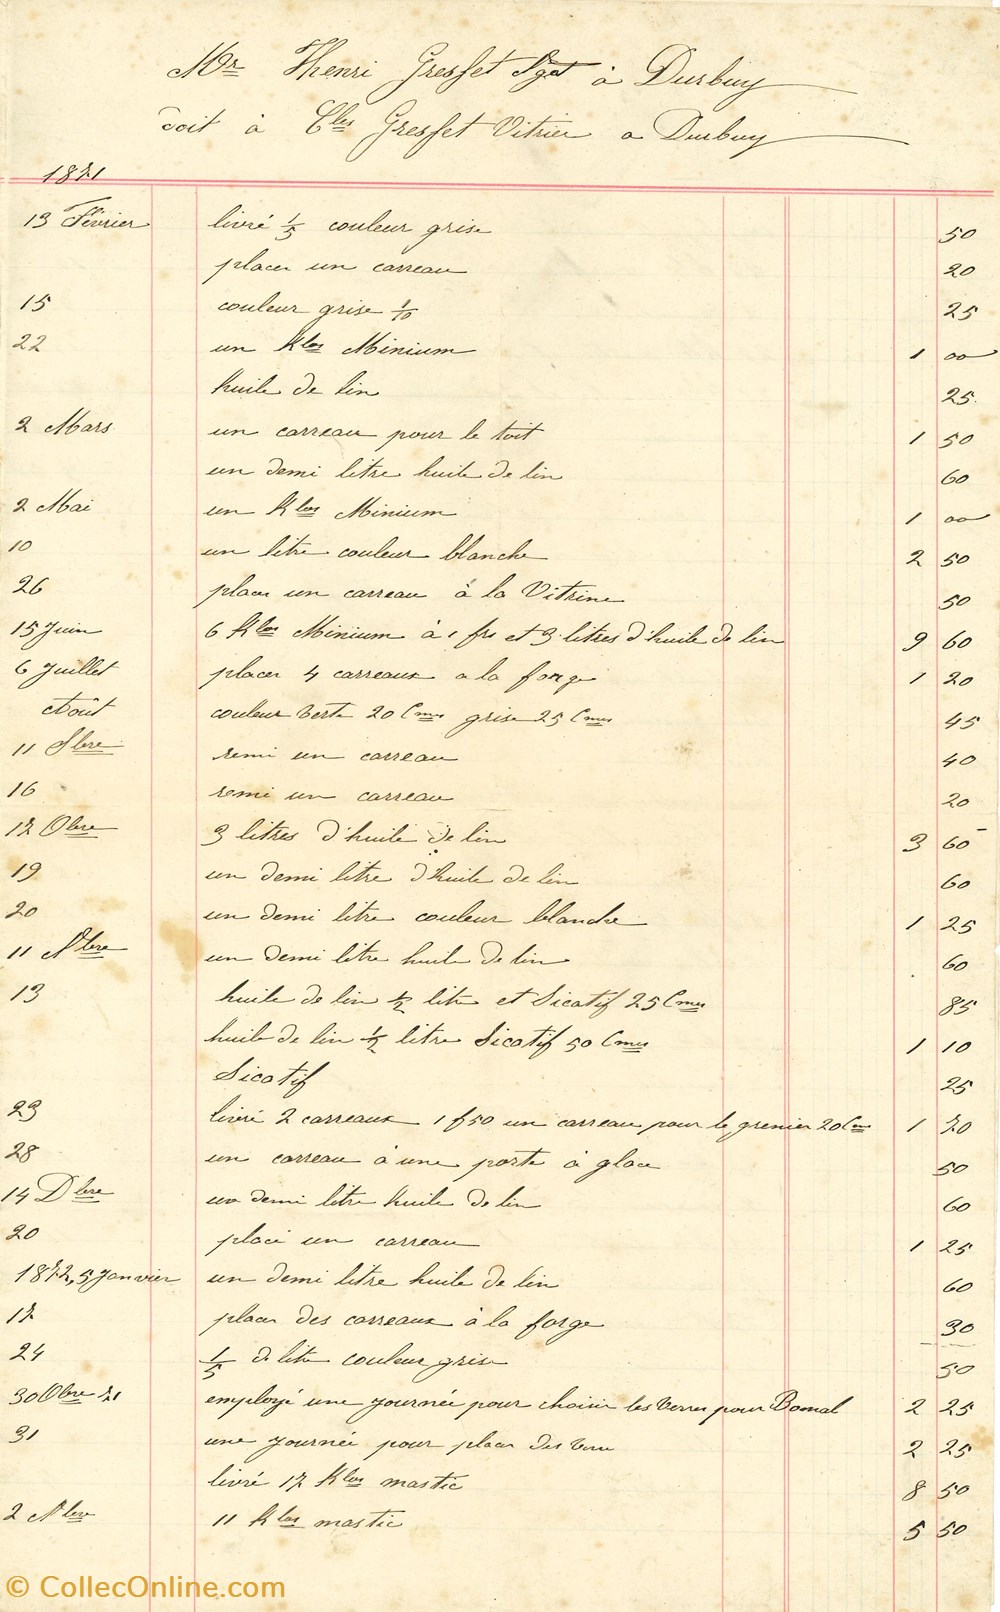 Mr Henri Gresset Sget à Durbuy
doit à Cles Gresset Vitrier a Durbuy
1871
13 Février livré 1/5 couleur grise 50
placer un carreau 20
15 couleur grise 1/10 25
22 un Klos Minium 1 00
huile de lin 25
2 Mars un carreau pour le toit 1 50
un demi litre huile de lin 60
2 Mai un Klos Minium 1 00
10 un litre couleur blanche 2 50
26 placer un carreau à la Vitrine 50
15 Juin 6 Klos Minium à 1 frs et 3 litres d'huile de lin 9 60
6 Juillet placer 4 carreaux a la forge 1 20
Août couleur verte 20 Cmes grise 25 Cmes 45
11 Sbre remi un carreau 40
16 remi un carreau 20
17 Obre 3 litres d'huile de lin 3 60
19 un demi litre d'huile de lin 60
20 un demi litre couleur blanche 1 25
11 Nbre un demi litre huile de lin 60
13 huile de lin 1/2 litre et Sicatif 25 Cmes 85
huile de lin 1/2 litre Sicatif 50 Cmes 1 10
Sicatif 25
23 livré 2 carreaux 1 f 50 un carreau pour le grenier 20 Cm 1 70
28 un carreau à une porte à glace 50
14 Dbre un demi litre huile de lin 60
20 placé un carreau 1 25
1872, 5 Janvier un demi litre huile de lin 60
17 placer des carreaux à la forge 30
24 1/5 de litre couleur grise 50
30 Obre 71 employé une journée pour choisir les verres pour Bomal 2 25
31 une journée pour placer des verre 2 25
livré 17 Klos mastic 8 50
2 Nbre 11 Klos mastic 5 50
© CollecOnline.com